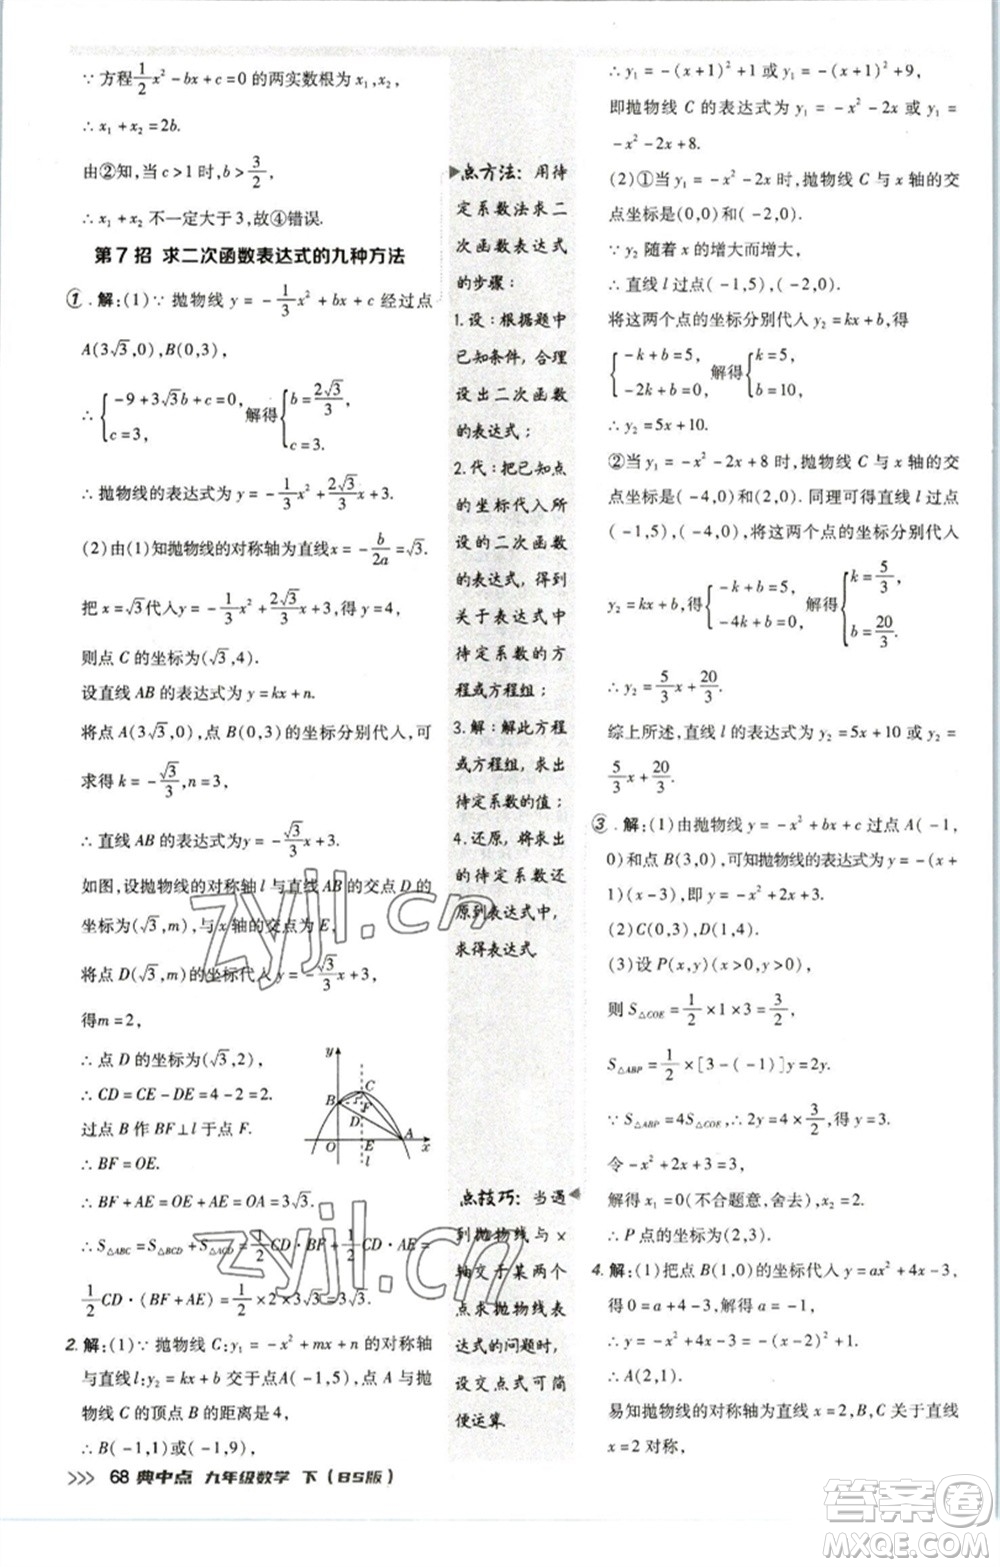 ∵ 方程 1/2 x² - bx + c = 0 的两实数根为 x₁, x₂,
∴ x₁ + x₂ = 2b.
由②知,当 c > 1 时, b > 3/2,
∴ x₁ + x₂ 不一定大于 3,故④错误.
第 7 招 求二次函数表达式的九种方法
1. 解:(1)∵ 抛物线 y = -1/3 x² + bx + c 经过点
A(3√3,0), B(0,3),
∴ { -9 + 3√3b + c = 0, c = 3, 解得 { b = 2√3/3, c = 3.
∴ 抛物线的表达式为 y = -1/3 x² + 2√3/3 x + 3.
(2)由(1)知抛物线的对称轴为直线 x = -b/2a = √3.
把 x = √3代入 y = -1/3 x² + 2√3/3 x + 3,得 y = 4,
则点 C 的坐标为(√3,4).
设直线 AB 的表达式为 y = kx + n.
将点 A(3√3,0),点 B(0,3)的坐标分别代入,可
求得 k = -√3/3, n = 3.
∴ 直线 AB 的表达式为 y = -√3/3 x + 3.
如图,设抛物线的对称轴 l 与直线 AB 的交点 D 的
坐标为(√3,m),与 x 轴的交点为 E,
将点 D(√3,m)的坐标代入 y = -√3/3 x + 3,
得m = 2,
∴ 点 D 的坐标为(√3,2),
∴ CD = CE - DE = 4 - 2 = 2.
过点 B 作 BF⊥l 于点 F.
∴ BF = OE.
∴ BF + AE = OE + AE = OA = 3√3,
∴ S△ABC = S△BCD + S△ACD = 1/2 CD·BF + 1/2 CD·AE =
1/2 CD·(BF + AE) = 1/2 × 2 × 3√3 = 3√3.
y
C
B
F
D
O
E
A
x
l
2. 解:(1)∵ 抛物线 C: y₁ = -x² + mx + n 的对称轴
与直线l: y₂ = kx + b 交于点A( -1,5),点 A 与抛
物线 C 的顶点 B 的距离是 4,
∴ B( -1,1)或( -1,9),
点方法: 用待
定系数法求二
次函数表达式
的步骤:
1. 设:根据题中
已知条件,合理
设出二次函数
的表达式;
2. 代:把已知点
的坐标代入所
设的二次函数
的表达式,得到
关于表达式中
待定系数的方
程或方程组;
3. 解:解此方程
或方程组,求出
待定系数的值;
4. 还原,将求出
的待定系数还
原到表达式中,
求得表达式.
点技巧: 当遇
到抛物线与 x
轴交于某两个
点求抛物线表
达式的问题时,
设交点式可简
便运算.
∴ y₁ = -(x+1)² + 1 或 y₁ = -(x+1)² + 9,
即抛物线 C 的表达式为 y₁ = -x² - 2x 或 y₁ =
-x² - 2x + 8.
(2)①当 y₁ = -x² - 2x 时,抛物线 C 与 x 轴的交
点坐标是(0,0)和( -2,0).
∵ y₂ 随着 x 的增大而增大,
∴ 直线 l 过点( -1,5),( -2,0).
将这两个点的坐标分别代入 y₂ = kx + b,得
{ -k + b = 5, -2k + b = 0, 解得 { k = 5, b = 10,
∴ y₂ = 5x + 10.
②当 y₁ = -x² - 2x + 8 时,抛物线 C 与 x 轴的交
点坐标是( -4,0)和(2,0). 同理可得直线 l 过点
( -1,5),( -4,0),将这两个点的坐标分别代入
y₂ = kx + b,得 { -k + b = 5, -4k + b = 0, 解得 { k = 5/3, b = 20/3,
∴ y₂ = 5/3 x + 20/3.
综上所述,直线 l 的表达式为 y₂ = 5x + 10或 y₂ =
5/3 x + 20/3.
3. 解:(1)由抛物线 y = -x² + bx + c 过点 A( -1,
0)和点 B(3,0),可知抛物线的表达式为 y = -(x +
1)(x - 3),即 y = -x² + 2x + 3.
(2)C(0,3),D(1,4).
(3)设 P(x,y)(x > 0,y > 0),
则 S△COE = 1/2 × 1 × 3 = 3/2,
S△ABP = 1/2 × [3 - ( -1)]y = 2y.
∵ S△ABP = 4S△COE, ∴ 2y = 4 × 3/2,得 y = 3.
令 -x² + 2x + 3 = 3,
解得 x₁ = 0(不合题意,舍去), x₂ = 2,
∴ P 点的坐标为(2,3).
4. 解:(1)把点 B(1,0)的坐标代入 y = ax² + 4x - 3,
得 0 = a + 4 - 3,解得 a = -1,
∴ y = -x² + 4x - 3 = -(x - 2)² + 1.
∴ A(2,1).
易知抛物线的对称轴为直线 x = 2,B,C 关于直线
x = 2 对称,
>>> 68 典中点 九年级数学 下(BS版)
zyjl.cn
zyjl.cn
答案圈
MXQE.COM